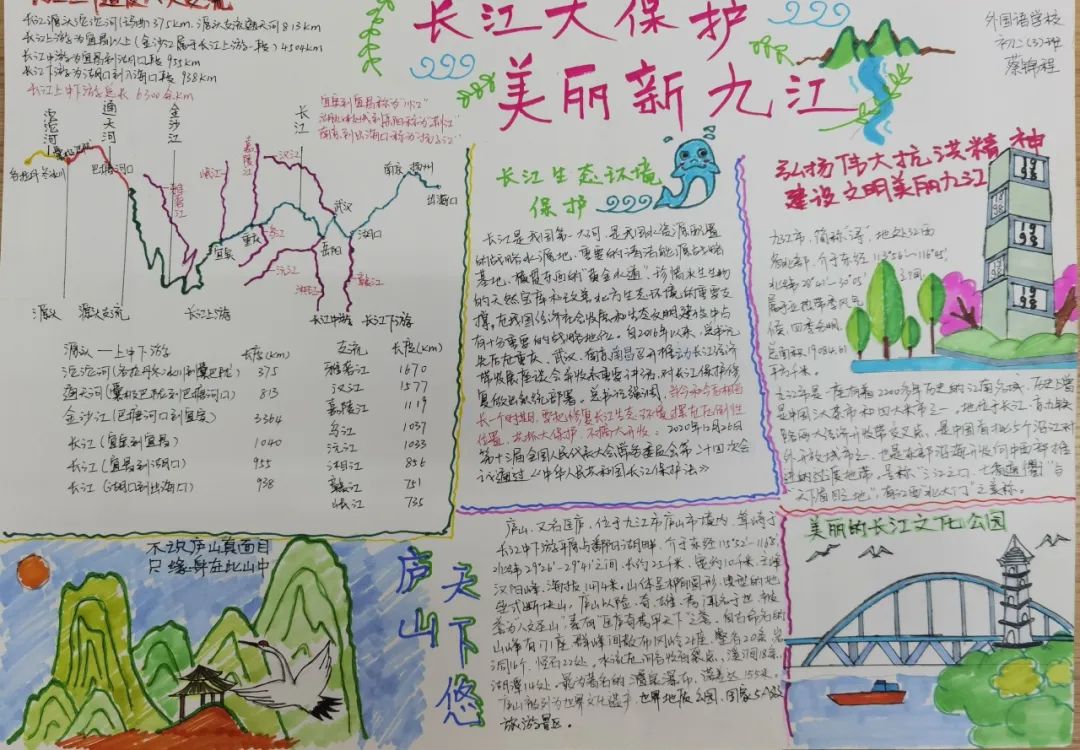 长江大保护
美丽新九江
外国语学校
初二(3)班
长江源头沱沱河(玛曲)375km.源头支流通天河813km
长江上游为宜昌以上(金沙江属于长江上游一段)4504km
长江中游为宜昌到湖口段955km
长江下游为湖口到入海口段938km
长江上中下游总长6300余km
沱沱河
通天河
金沙江
长江
宜宾到宜昌称为"川江"
各拉丹冬冰川
巴塘河口
雅砻江
岷江
嘉陵江
汉江
宜宾
重庆
乌江
沅江
湘江
武汉
岳阳
湖口
赣江
南京
扬州
出海口
源头
源头支流
长江上游
长江中游
长江下游
源头——上中下游 长度(km)
沱沱河 375
通天河 813
金沙江(巴塘河口到宜宾) 3364
长江(宜宾到宜昌) 1040
长江(宜昌到湖口) 955
长江(湖口到出海口) 938
支流 长度(km)
雅砻江 1670
汉江 1577
嘉陵江 1119
乌江 1037
沅江 1033
湘江 856
赣江 751
岷江 735
长江生态环境
保护
长江是我国第一大河,是我国水资源配置
的战略水源地,重要的清洁能源战略
基地,横贯东西的"黄金水道",珍稀水生生物
的天然宝库和改善北方生态环境的重要支
撑,在我国经济社会发展和生态文明建设中占
有十分重要的战略地位。自2016年以来,总书记
先后在重庆、武汉、南京、南昌召开推动长江经济
带发展座谈会并发表重要讲话,对长江保护修
复做出系统部署。总书记强调,当前和今后相当
长一个时期,要把修复长江生态环境摆在压倒性
位置,共抓大保护,不搞大开发。2020年12月26日
第十三届全国人民代表大会常务委员会第二十四次会
议通过《中华人民共和国长江保护法》
弘扬伟大抗洪精神
建设文明美丽九江
1998
1998
1998
1998
九江市,简称"浔",地处江西
省北部,介于东经113°56′~116°05′
北纬28°41′~30°05′
之间,
属亚热带季风气
候,四季分明,
总面积19084.61
平方千米。
九江市是一座有着2000多年历史的江南名城,历史上曾
是中国三大茶市和四大米市之一,地处于长江、京九铁
路两大经济开发带交叉点,是中国首批5个沿江对
外开放城市之一,也是东部沿海开发向中西部推
进的过渡地带,号称"三江之口、七省通衢"与
"天下眉目之地",有江西"北大门"之美称。
不识庐山真面目
只缘身在此山中
庐山
天下悠
庐山,又名匡庐,位于九江市庐山市境内,耸峙于
长江中下游平原与鄱阳湖畔,介于东经115°52′-116°8′,
北纬29°26′-29°41′之间,长约25千米,宽约10千米,主峰
汉阳峰,海拔1474米,山体呈椭圆形,典型的地
垒式断块山。庐山以雄、奇、险、秀闻名于世,被
誉为"人文圣山",素有"匡庐奇秀甲天下"之美誉。
旅游景区。
美丽的长江文化公园